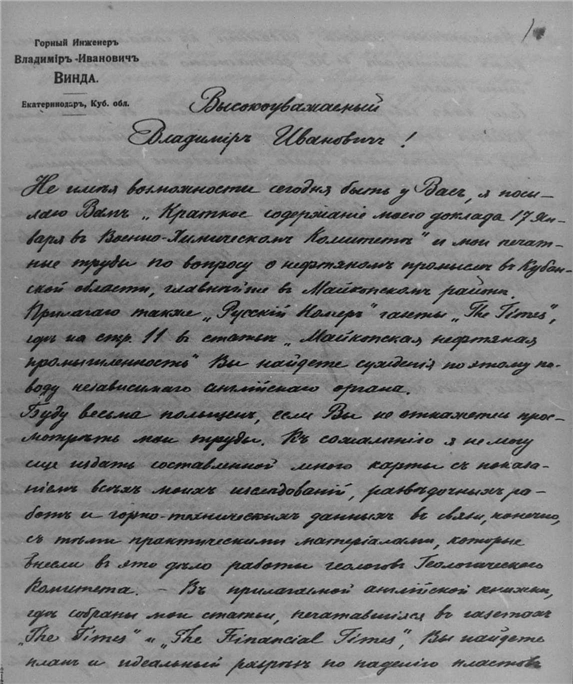 1
Горный Инженеръ
Владиміръ Ивановичъ
Винда.
Екатеринодаръ, Куб. обл.
Высокоуважаемый
Владиміръ Ивановичъ!
Не имѣя возможности сегодня быть у Васъ, я посы-
лаю Вамъ „Краткое содержаніе моего доклада 17 Ян-
варя въ Военно-Химическомъ Комитетѣ" и мои печат-
ные труды по вопросу о нефтяномъ промыслѣ въ Кубан-
ской области, главнѣйше въ Майкопскомъ районѣ.
Прилагаю также „Русскій Номеръ" газеты „The Times",
гдѣ на стр. 11 въ статьѣ „Майкопская нефтяная
промышленность" Вы найдете сужденія по этому по-
воду независимаго англійскаго органа.
Буду весьма польщенъ, если Вы не откажетесь прос-
мотрѣть мои труды. Къ сожалѣнію я не могу
еще издать составленной мною карты съ показа-
ніемъ всѣхъ моихъ изслѣдованій, развѣдочныхъ ра-
ботъ и горно-техническихъ данныхъ въ связи, конечно,
съ тѣми практическими матеріалами, которые
внесли въ это дѣло работы геологовъ Геологическаго
Комитета. — Въ прилагаемой англійской книжкѣ,
гдѣ собраны мои статьи, печатавшіяся въ газетахъ
„The Times" и „The Financial Times", Вы найдете
планъ и идеальный разрѣзъ по паденію пластовъ